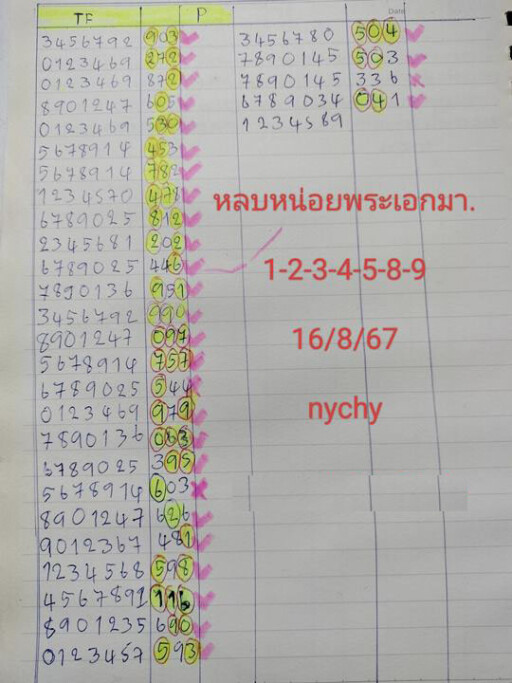 TF P
3456792 903
0123469 272
0123469 872
8901247 605
0123469 530
5678914 453
5678914 782
1234570 478
6789025 812
2345681 202
6789025 446
7890136 951
3456792 990
8901247 097
5678914 757
6789025 544
0123469 979
7890136 063
6789025 395
5678914 603
8901247 626
9012367 481
1234568 598
4567891 116
8901235 690
0123457 593
Date
3456780 504
7890145 503
7890145 336
6789034 041
1234589
หลบหน่อยพระเอกมา.
1-2-3-4-5-8-9
16/8/67
nychy